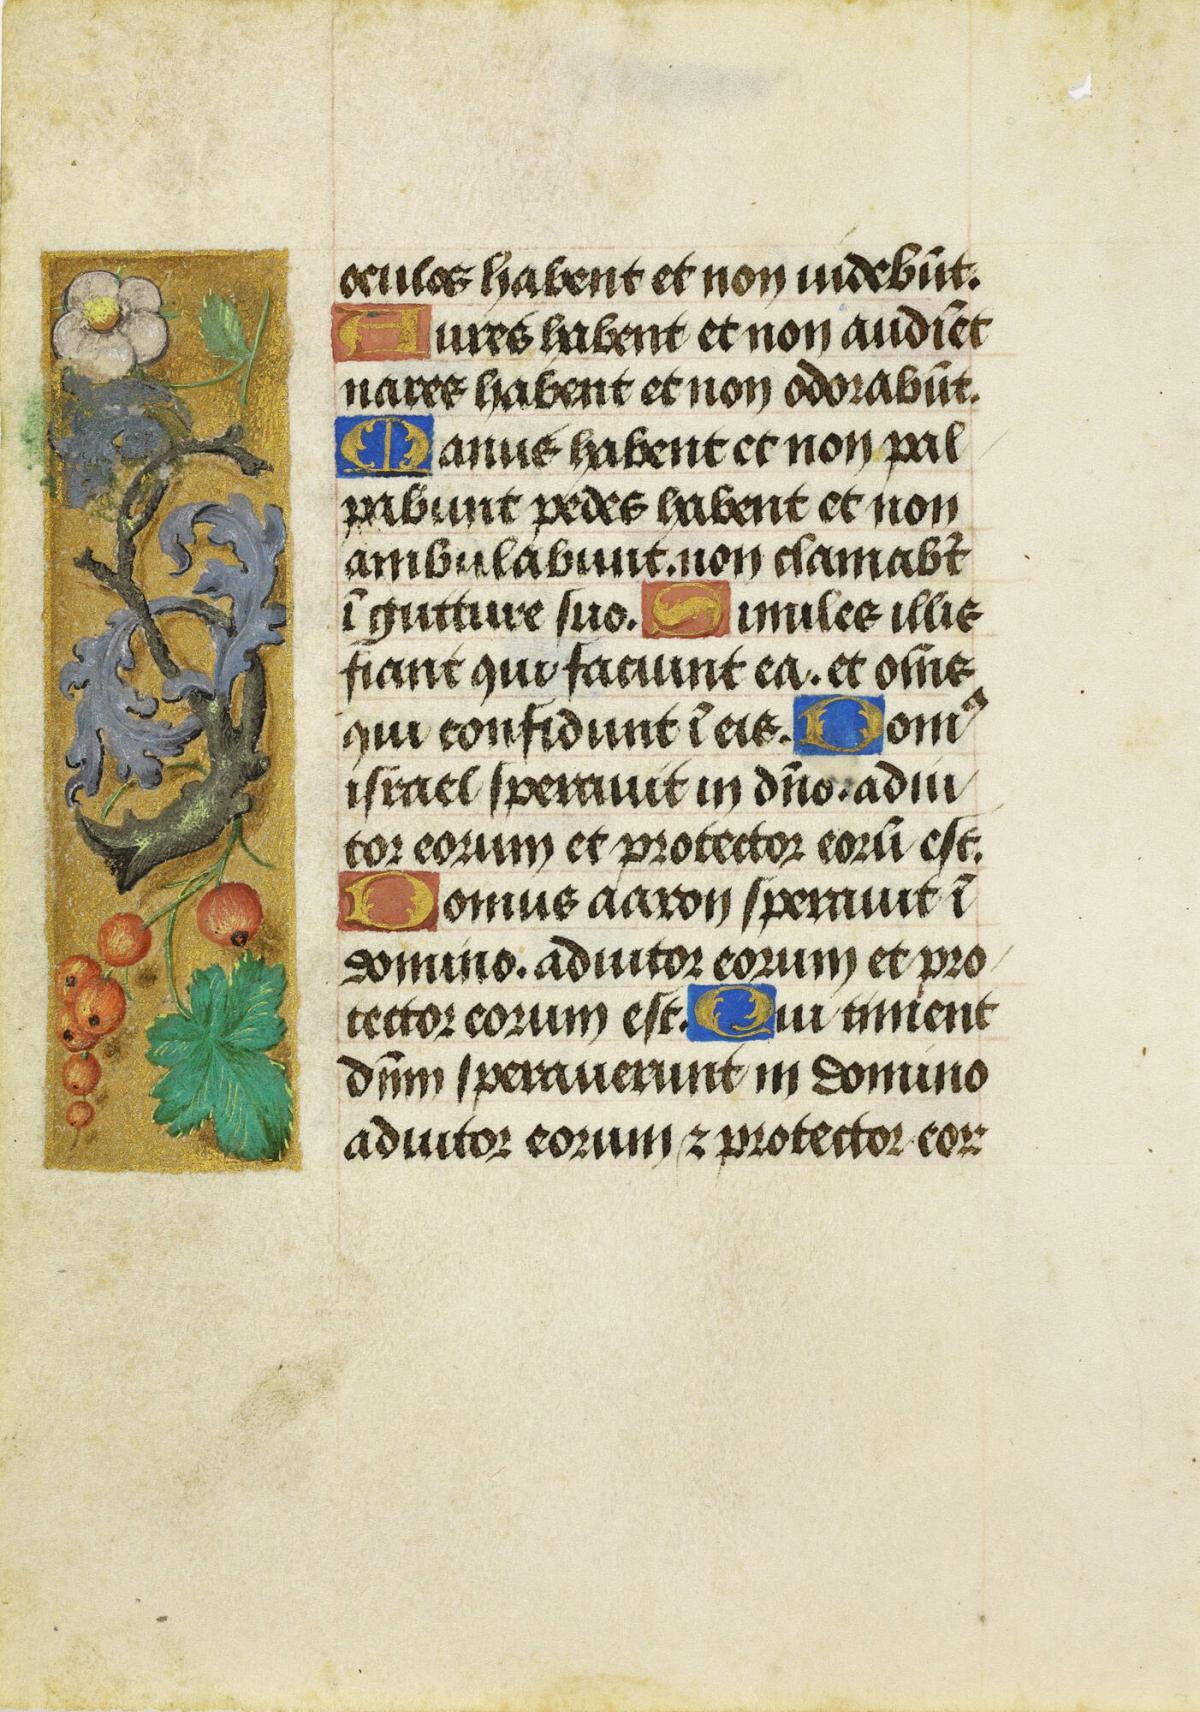 oculos habent et non uidebūt.
Aures habent et non audiēt
nares habent et non odorabūt.
Manus habent et non pal
pabunt pedes habent et non
ambulabunt. non clamabt̄
ī gutture suo. Similes illis
fiant qui faciunt ea. et om̄s
qui confidunt ī eis. Domꝰ
israel sperauit in dño. adiu
tor eorum et protector eorū est.
Domus aaron sperauit ī
domino. adiutor eorum et pro
tector eorum est. Qui timent
dn̄m sperauerunt in domino
adiutor eorum ⁊ protector eoꝝ